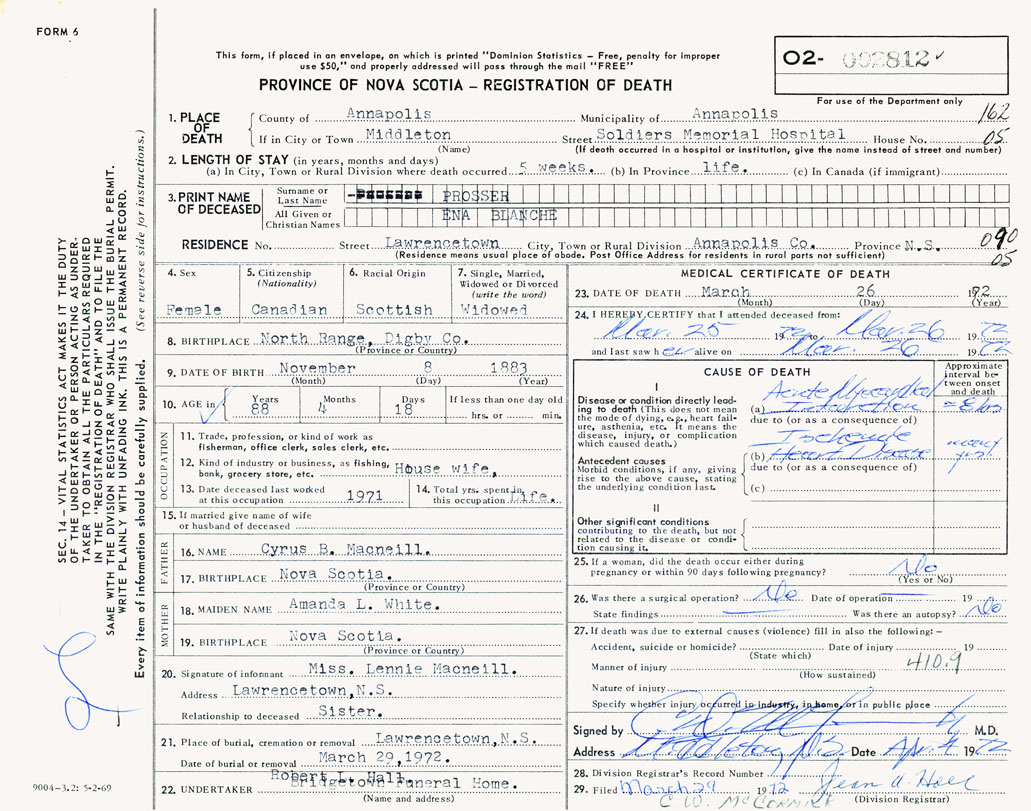 FORM 6
This form, if placed in an envelope, on which is printed "Dominion Statistics – Free, penalty for improper
use $50," and properly addressed will pass through the mail "FREE"
O2- 002812
For use of the Department only
PROVINCE OF NOVA SCOTIA – REGISTRATION OF DEATH
1. PLACE OF DEATH
County of Annapolis Municipality of Annapolis 162
If in City or Town Middleton Street Soldiers Memorial Hospital House No. 05
(Name) (If death occurred in a hospital or institution, give the name instead of street and number)
2. LENGTH OF STAY (in years, months and days)
(a) In City, Town or Rural Division where death occurred 5 weeks. (b) In Province life. (c) In Canada (if immigrant)
3. PRINT NAME OF DECEASED
Surname or Last Name PROSSER
All Given or Christian Names ENA BLANCHE
RESIDENCE No. Street Lawrencetown City, Town or Rural Division Annapolis Co. Province N.S. 090
(Residence means usual place of abode. Post Office Address for residents in rural parts not sufficient) 05
4. Sex
Female
5. Citizenship
(Nationality)
Canadian
6. Racial Origin
Scottish
7. Single, Married,
Widowed or Divorced
(write the word)
Widowed
8. BIRTHPLACE North Range, Digby Co.
(Province or Country)
9. DATE OF BIRTH November 8 1883
(Month) (Day) (Year)
10. AGE in
Years Months Days If less than one day old
88 4 18 hrs. or min.
OCCUPATION
11. Trade, profession, or kind of work as
fisherman, office clerk, sales clerk, etc.
12. Kind of industry or business, as fishing,
bank, grocery store, etc. House wife,
13. Date deceased last worked
at this occupation 1971
14. Total yrs. spent in
this occupation life.
15. If married give name of wife
or husband of deceased
FATHER
16. NAME Cyrus B. Macneill.
17. BIRTHPLACE Nova Scotia.
(Province or Country)
MOTHER
18. MAIDEN NAME Amanda L. White.
19. BIRTHPLACE Nova Scotia.
(Province or Country)
20. Signature of informant Miss. Lennie Macneill.
Address Lawrencetown,N.S.
Relationship to deceased Sister.
21. Place of burial, cremation or removal Lawrencetown,N.S.
Date of burial or removal March 29,1972.
Robert L. Hall.
22. UNDERTAKER Bridgetown Funeral Home.
(Name and address)
MEDICAL CERTIFICATE OF DEATH
23. DATE OF DEATH March 26 1972
(Month) (Day) (Year)
24. I HEREBY CERTIFY that I attended deceased from:
Mar. 25 1972 to Mar. 26 1972
and last saw her alive on Mar. 26 1972
CAUSE OF DEATH
Approximate
interval be-
tween onset
and death
I
Disease or condition directly lead-
ing to death (This does not mean
the mode of dying, e.g., heart fail-
ure, asthenia, etc. It means the
disease, injury, or complication
which caused death.)
Acute Myocardial
(a) Infarction
due to (or as a consequence of)
Antecedent causes
Morbid conditions, if any, giving
rise to the above cause, stating
the underlying condition last.
Ischemic
(b) Heart Disease
due to (or as a consequence of)
(c)
II
Other significant conditions
contributing to the death, but not
related to the disease or condi-
tion causing it.
25. If a woman, did the death occur either during
pregnancy or within 90 days following pregnancy? No
(Yes or No)
26. Was there a surgical operation? No Date of operation 19
State findings Was there an autopsy? No
27. If death was due to external causes (violence) fill in also the following: –
Accident, suicide or homicide? Date of injury 19
(State which) 410.9
Manner of injury
(How sustained)
Nature of injury
Specify whether injury occurred in industry, in home, or in public place
Signed by M.D.
Address Middleton, N.S. Date April 4 1972
28. Division Registrar's Record Number
29. Filed March 29 1972 Jean A. Hall
C. W. McCORMICK (Division Registrar)
SEC. 14 – VITAL STATISTICS ACT MAKES IT THE DUTY
OF THE UNDERTAKER OR PERSON ACTING AS UNDER-
TAKER TO OBTAIN ALL THE PARTICULARS REQUIRED
IN THE "REGISTRATION OF DEATH" AND TO FILE THE
SAME WITH THE DIVISION REGISTRAR WHO SHALL ISSUE THE BURIAL PERMIT.
WRITE PLAINLY WITH UNFADING INK. THIS IS A PERMANENT RECORD.
Every item of information should be carefully supplied. (See reverse side for instructions.)
9004-3.2: 5-2-69